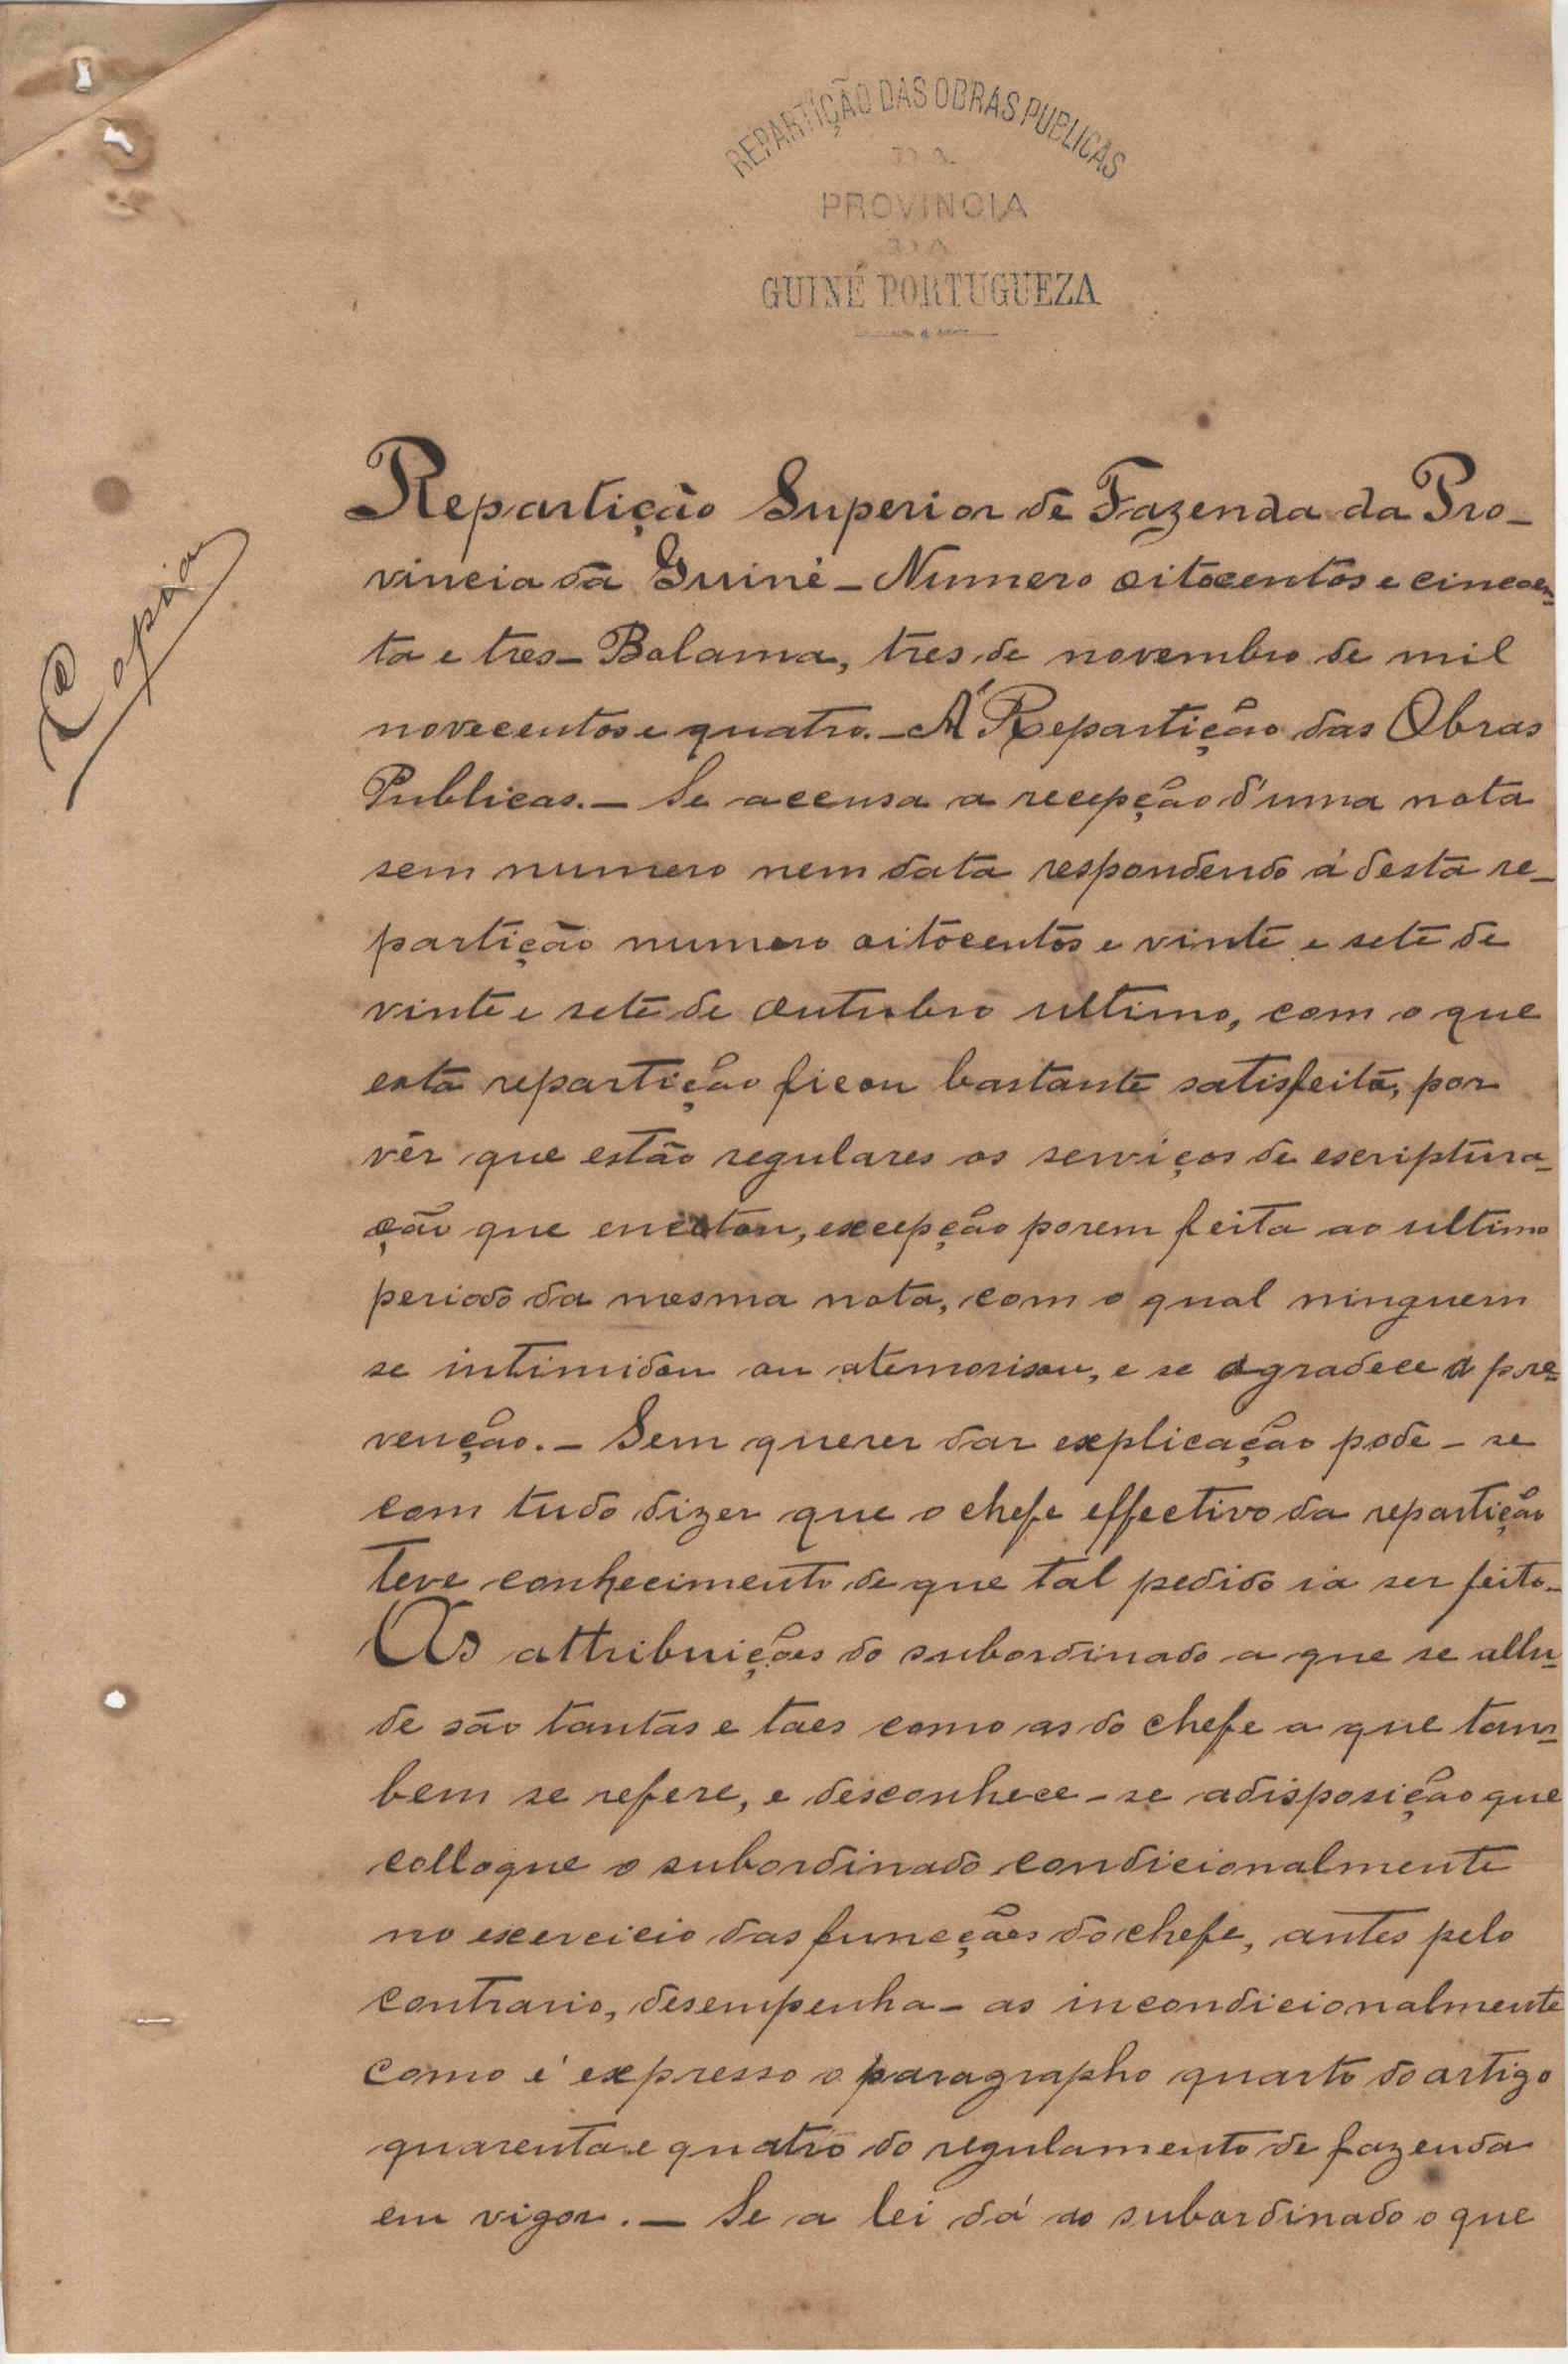 REPARTIÇÃO DAS OBRAS PUBLICAS
DA
PROVINCIA
DA
GUINÉ PORTUGUEZA
Copia
Repartição Superior de Fazenda da Pro-
vincia da Guiné - Numero oitocentos e cincoen-
ta e tres - Bolama, tres de novembro de mil
novecentos e quatro. - Á Repartição das Obras
Publicas. - Se accusa a recepção d'uma nota
sem numero nem data respondendo á desta re-
partição numero oitocentos e vinte e sete de
vinte e sete de outubro ultimo, com o que
esta repartição ficou bastante satisfeita, por
vêr que estão regulares os serviços de escriptura-
ção que encetou, excepção porem feita ao ultimo
periodo da mesma nota, com o qual ninguem
se intimidou ou atemorisou, e se agradece a pre-
venção. - Sem querer dar explicação pode-se
com tudo dizer que o chefe effectivo da repartição
teve conhecimento de que tal pedido ia ser feito.
As attribuições do subordinado a que se allu-
de são tantas e taes como as do chefe a que tam-
bem se refere, e desconhece-se a disposição que
colloque o subordinado condicionalmente
no exercicio das funcções do chefe, antes pelo
contrario, desempenha-as incondicionalmente
como é expresso o paragrapho quarto do artigo
quarenta e quatro do regulamento de fazenda
em vigor. - Se a lei dá ao subordinado o que